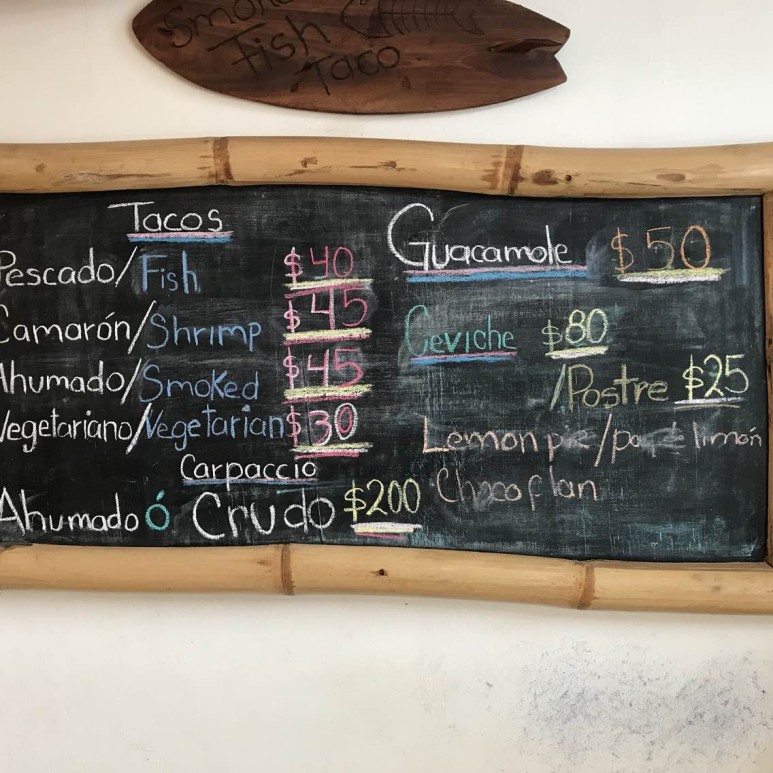 Fish
Taco
Tacos
Pescado/Fish $40
Camarón/Shrimp $45
Ahumado/Smoked $45
Vegetariano/Vegetarian $30
Carpaccio
Ahumado ó Crudo $200
Guacamole $50
Ceviche $80
/Postre $25
Lemon pie/ limón
Choco flan